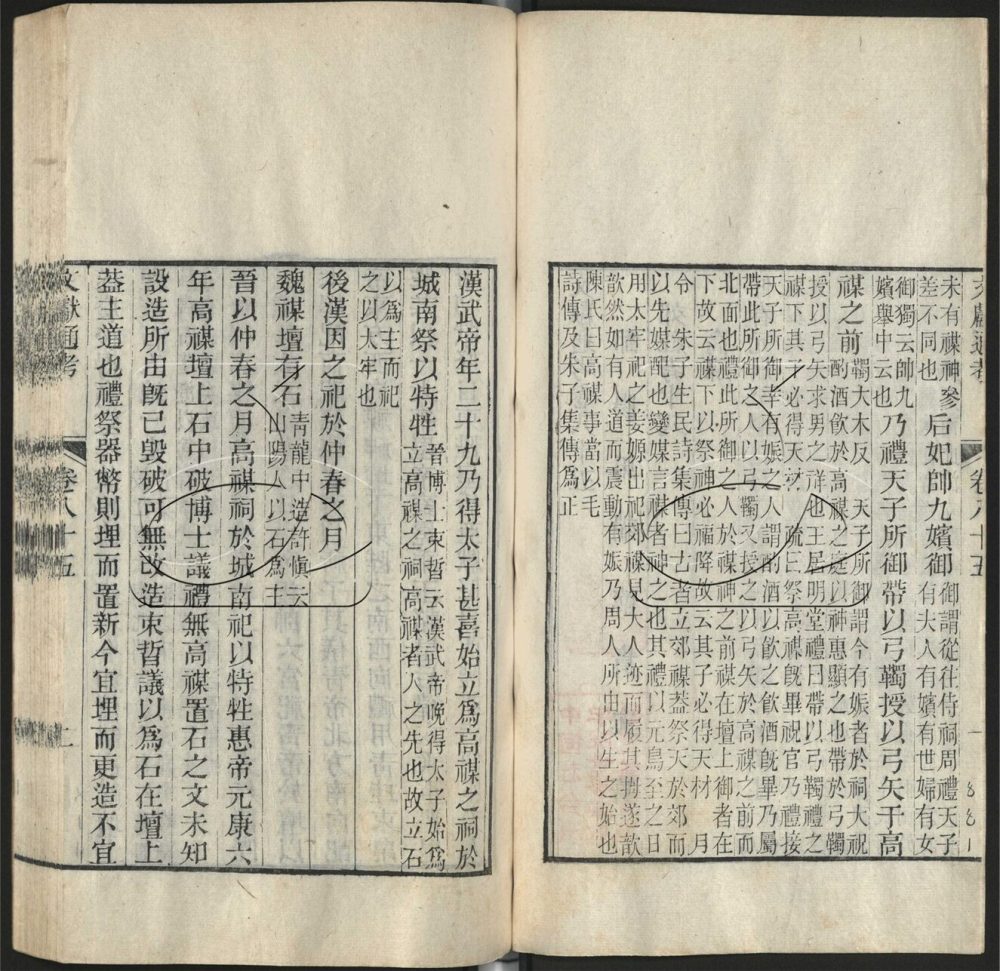 文獻通考 卷八十五 一
未有禖神參
差不同也
后妃帥九嬪御
御謂從往侍祠周禮天子
有夫人有嬪有世婦有女
御獨云帥九
嬪舉中云也
乃禮天子所御帶以弓韣授以弓矢于高
禖之前
韣大木反 天子所御謂今有娠者於祠大祝
酌酒飲於高禖之庭以神惠顯之也帶於弓韣
授以弓矢求男之祥也王居明堂禮曰帶以弓韣禮之
禖下其子必得天材 疏曰祭高禖旣畢祝官乃禮接
天子所御幸有娠之人謂酌酒以飲之飲酒旣畢乃屬
帶此所御之人以弓韣又授之以弓矢於高禖之前而
北面也禮此所御之人於禖神之前禖在壇上御者在
下故云禖下以祭神必福降故云其子必得天材 月
令 朱子生民詩集傳曰古者立郊禖蓋祭天於郊而
以先媒配也變媒言禖者神之也其禮以元鳥至之日
用太牢祀之姜嫄出祀郊禖見大人迹而履其拇遂歆
歆然如有人道而震動有娠乃周人所由以生之始也
陳氏曰高禖事當以毛
詩傳及朱子集傳爲正
漢武帝年二十九乃得太子甚喜始立爲高禖之祠於
城南祭以特牲
晉博士束晳云漢武帝晚得太子始爲
立高禖之祠高禖者人之先也故立石
以爲主而祀
之以大牢也
後漢因之祀於仲春之月
魏禖壇有石
靑龍中造許愼云
山陽人以石爲主
晉以仲春之月高禖祠於城南祀以特牲惠帝元康六
年高禖壇上石中破博士議禮無高禖置石之文未知
設造所由旣已毀破可無改造束晳議以爲石在壇上
葢主道也禮祭器幣則埋而置新今宜埋而更造不宜
文獻通考 卷八十五 二